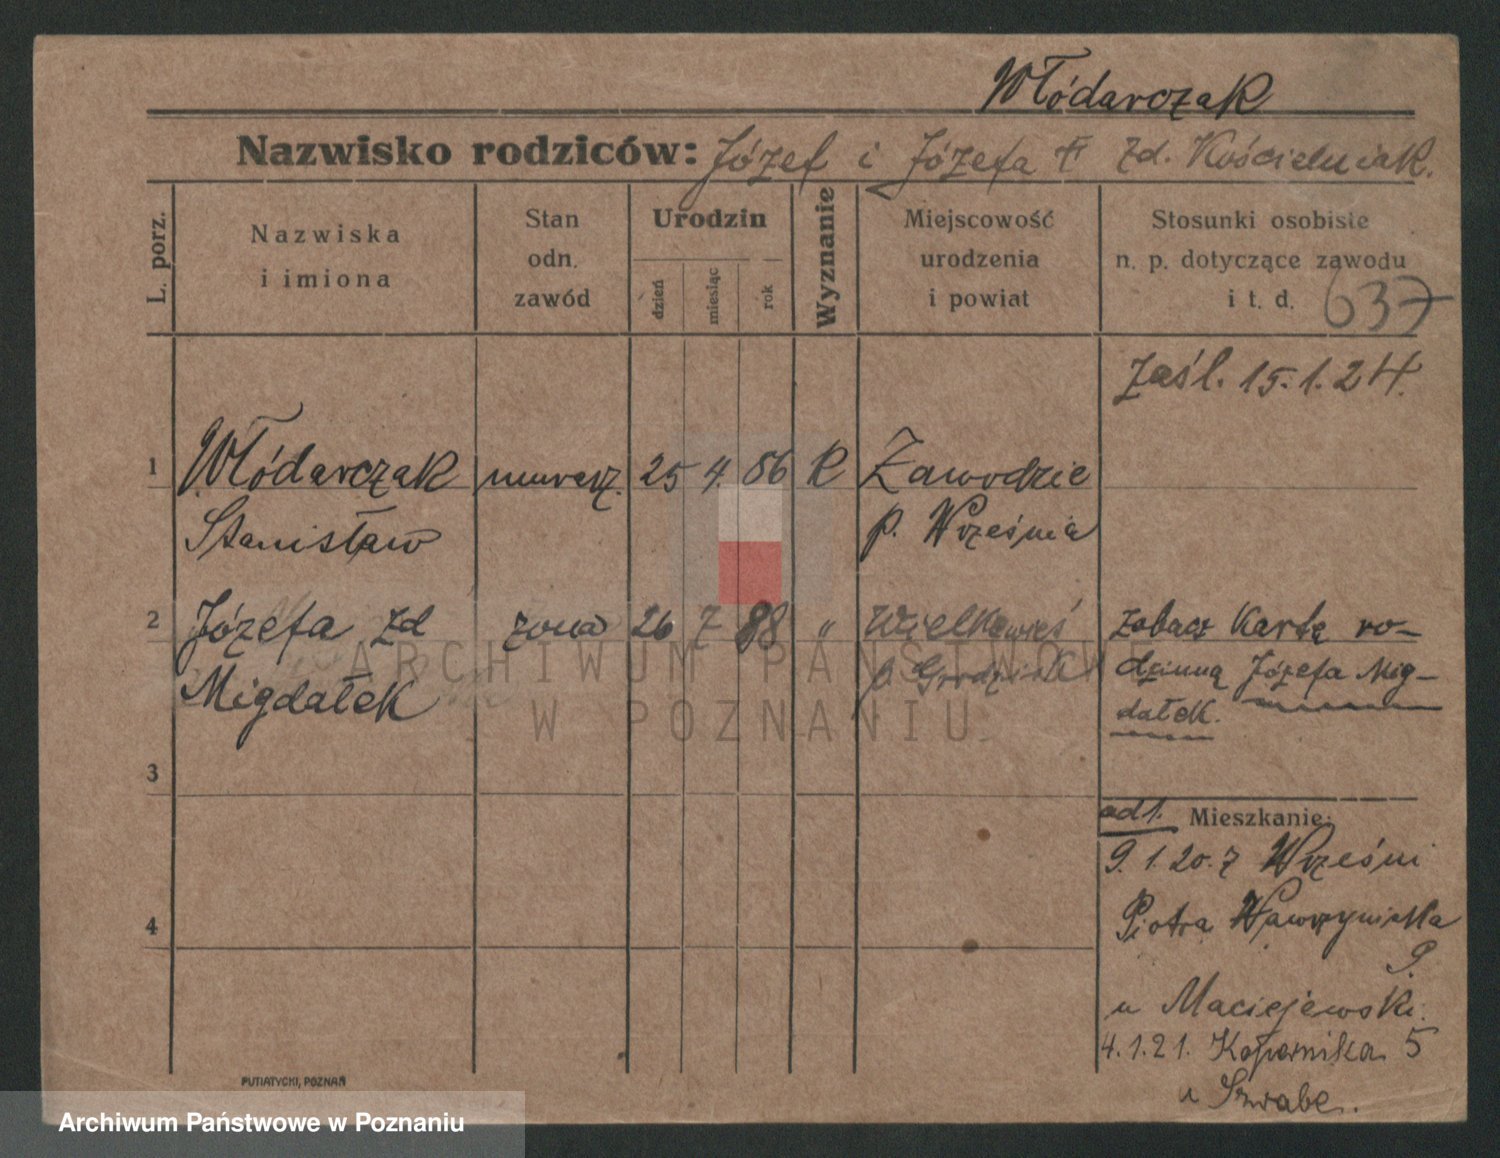 Włódarczak
Nazwisko rodziców: Józef i Józefa zd. Kościelniak.
L. porz.
Nazwiska
i imiona
Stan
odn.
zawód
Urodzin
dzień
miesiąc
rok
Wyznanie
Miejscowość
urodzenia
i powiat
Stosunki osobiste
n. p. dotyczące zawodu
i t. d.
637
zaśl. 15.1.24.
1 Włódarczak murarz. 25 4. 86 K Zawodzie
Stanisław p. Września
2 Józefa zd żona 26 7 88 " Wielkawieś zobacz Kartę ro-
Migdałek p. Grodzisk dzinną Józefa Mig-
dałek.
3
ad 1. Mieszkanie:
9.1.20. z Wrześni
4
Piotra Wawrzyniaka
9.
u Maciejewski.
4.1.21. Kopernika 5
u Szwabe.
PUTIATYCKI, POZNAŃ
ARCHIWUM PAŃSTWOWE
W POZNANIU
Archiwum Państwowe w Poznaniu